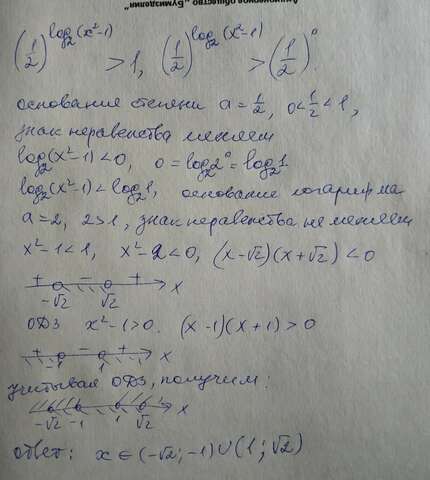 Акционерное общество „Бумизделия"
(1/2)^log₂(x²-1) > 1, (1/2)^log₂(x²-1) > (1/2)⁰.
основание степени a = 1/2, 0 < 1/2 < 1,
знак неравенства меняем
log₂(x²-1) < 0, 0 = log₂2⁰ = log₂1
log₂(x²-1) < log₂1, основание логарифма
a = 2, 2 > 1, знак неравенства не меняем
x²-1 < 1, x²-2 < 0, (x-√2)(x+√2) < 0
+ - + x
-√2 √2
ОДЗ x²-1 > 0. (x-1)(x+1) > 0
+ - + x
-1 1
учитывая ОДЗ, получим:
x
-√2 -1 1 √2
ответ: x ∈ (-√2; -1) ∪ (1; √2)